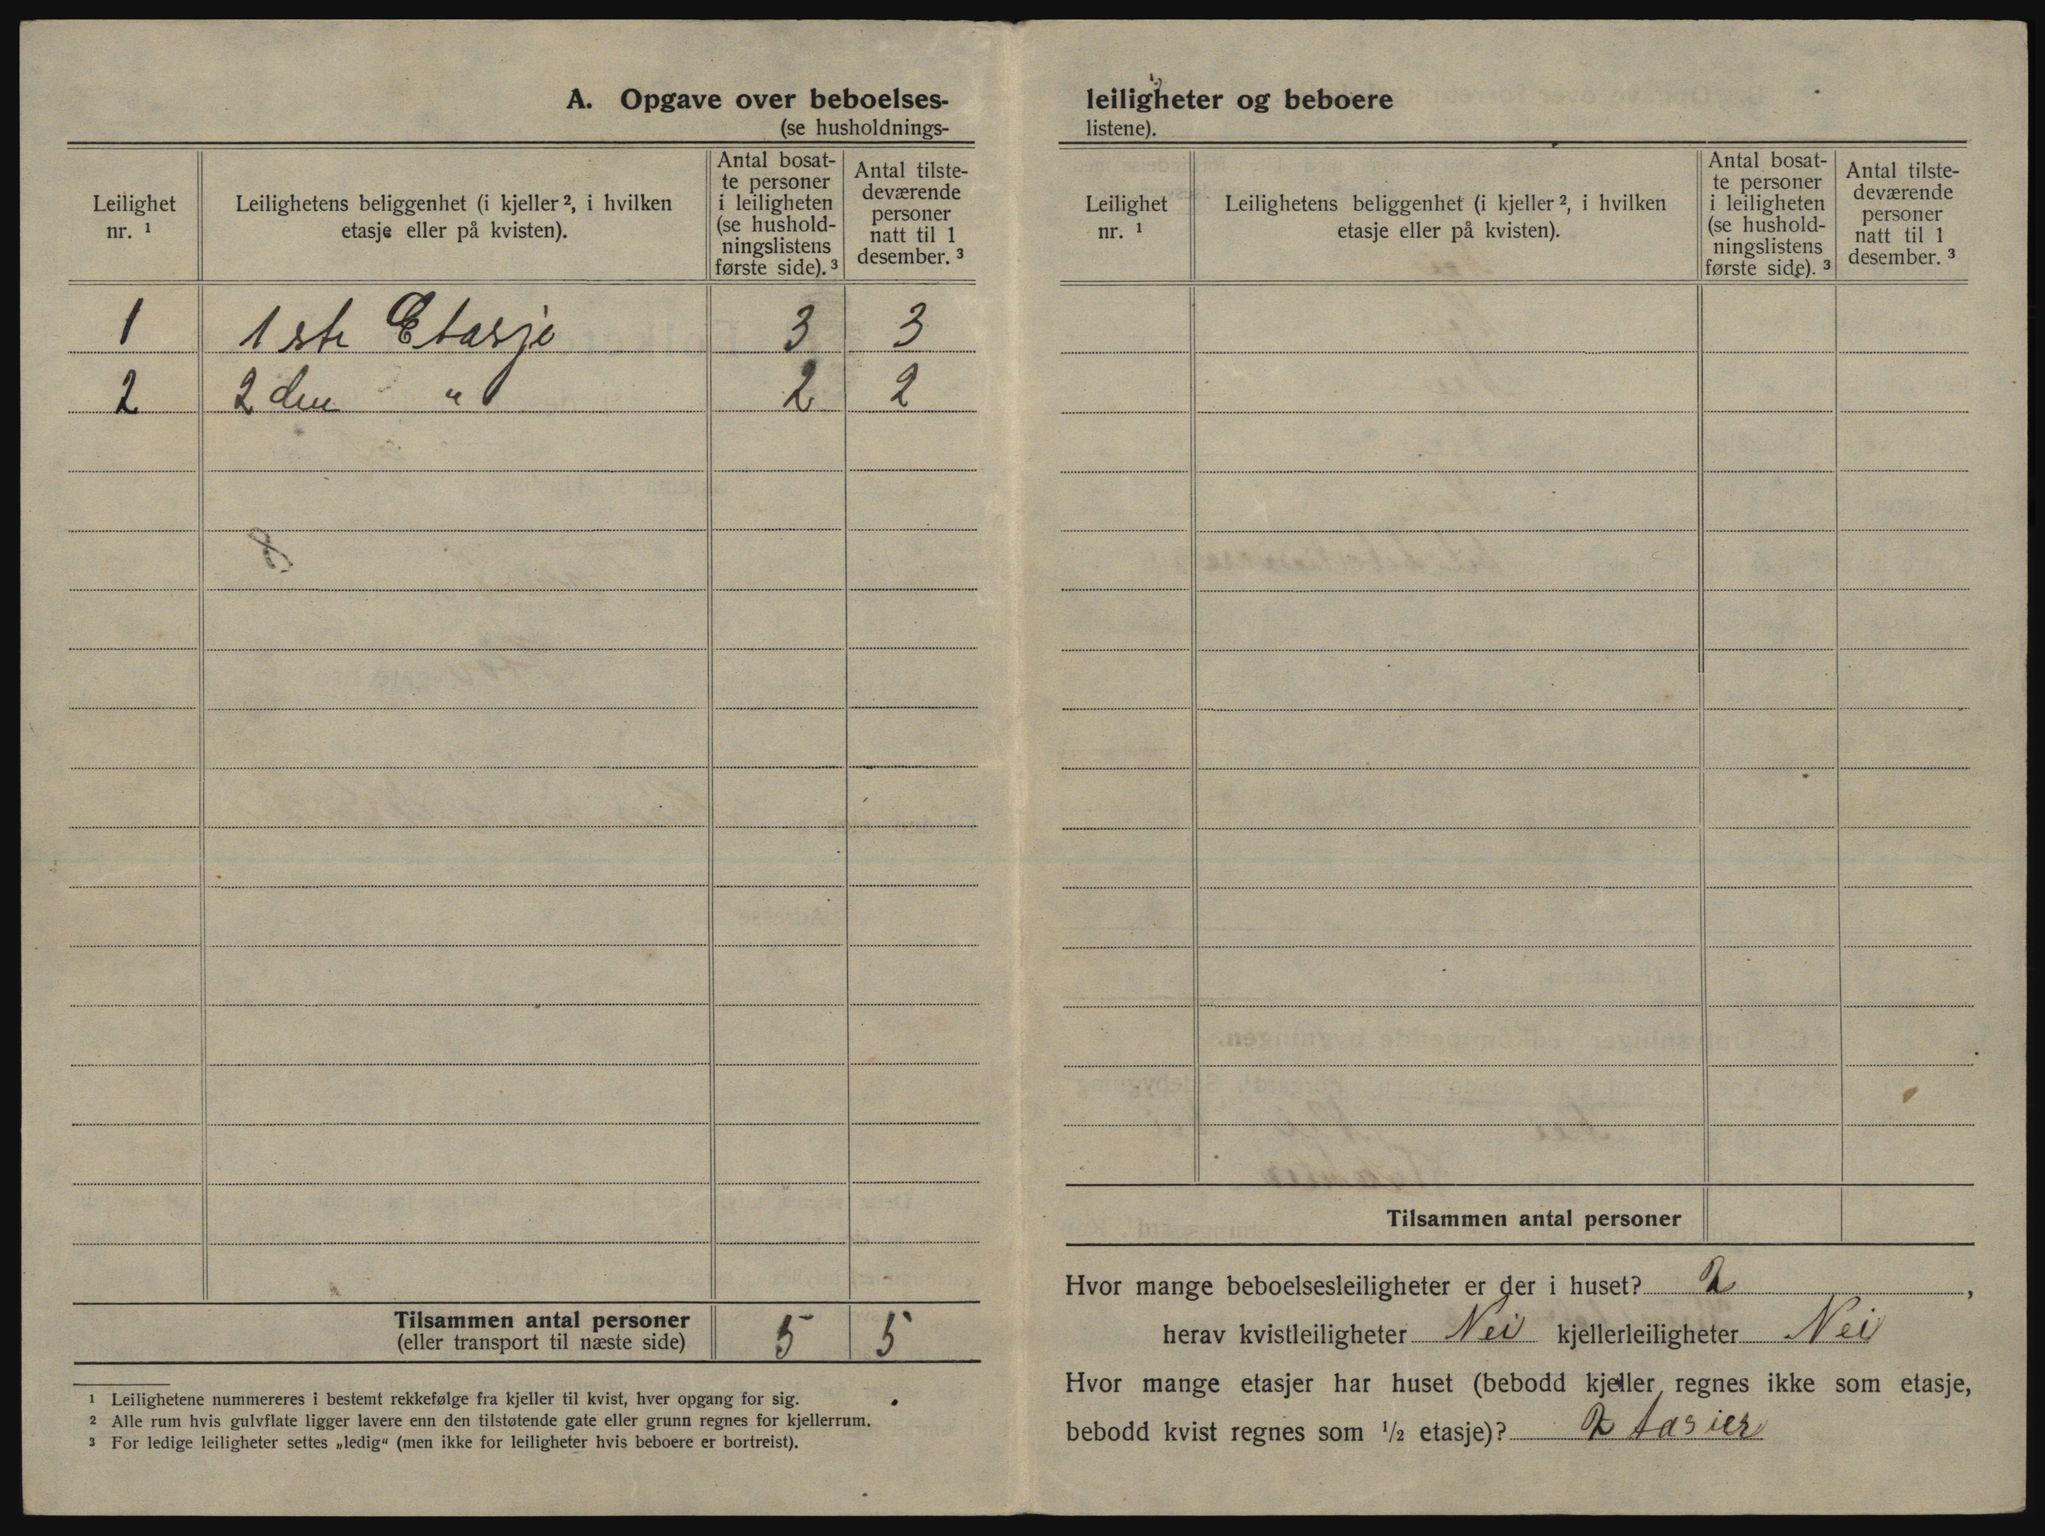 A. Opgave over beboelses-
(se husholdnings-
Leilighet nr. ¹
Leilighetens beliggenhet (i kjeller ², i hvilken
etasje eller på kvisten).
Antal bosat-
te personer
i leiligheten
(se hushold-
ningslistens
første side). ³
Antal tilste-
deværende
personer
natt til 1
desember. ³
1 1ste Etasje 3 3
2 2den " 2 2
8
Tilsammen antal personer 5 5
(eller transport til næste side)
¹ Leilighetene nummereres i bestemt rekkefølge fra kjeller til kvist, hver opgang for sig.
² Alle rum hvis gulvflate ligger lavere enn den tilstøtende gate eller grunn regnes for kjellerrum.
³ For ledige leiligheter settes „ledig“ (men ikke for leiligheter hvis beboere er bortreist).
leiligheter og beboere
listene).
Leilighet
nr. ¹
Leilighetens beliggenhet (i kjeller ², i hvilken
etasje eller på kvisten).
Antal bosat-
te personer
i leiligheten
(se hushold-
ningslistens
første side). ³
Antal tilste-
deværende
personer
natt til 1
desember. ³
Tilsammen antal personer
Hvor mange beboelsesleiligheter er der i huset? 2 ,
herav kvistleiligheter Nei kjellerleiligheter Nei
Hvor mange etasjer har huset (bebodd kjeller regnes ikke som etasje,
bebodd kvist regnes som 1/2 etasje)? 2 tasier